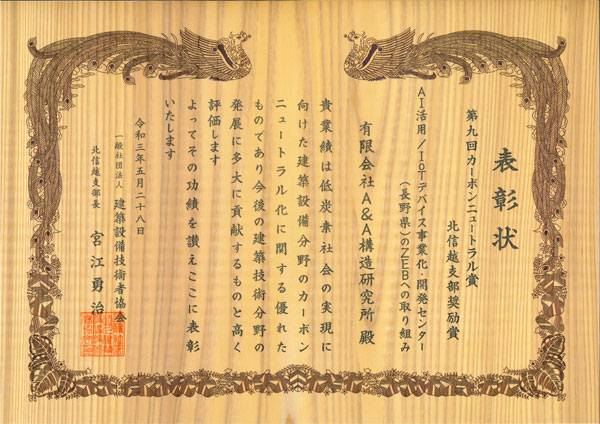 表彰状
第九回カーボンニュートラル賞
北信越支部奨励賞
AI活用/IoTデバイス事業化・開発センター
(長野県)のZEBへの取り組み
有限会社A&A構造研究所 殿
貴業績は低炭素社会の実現に
向けた建築設備分野のカーボン
ニュートラル化に関する優れた
ものであり今後の建築技術分野の
発展に多大に貢献するものと高く
評価します
よってその功績を讃えここに表彰
いたします
令和三年五月二十八日
一般社団法人 建築設備技術者協会
北信越支部長 宮江勇治